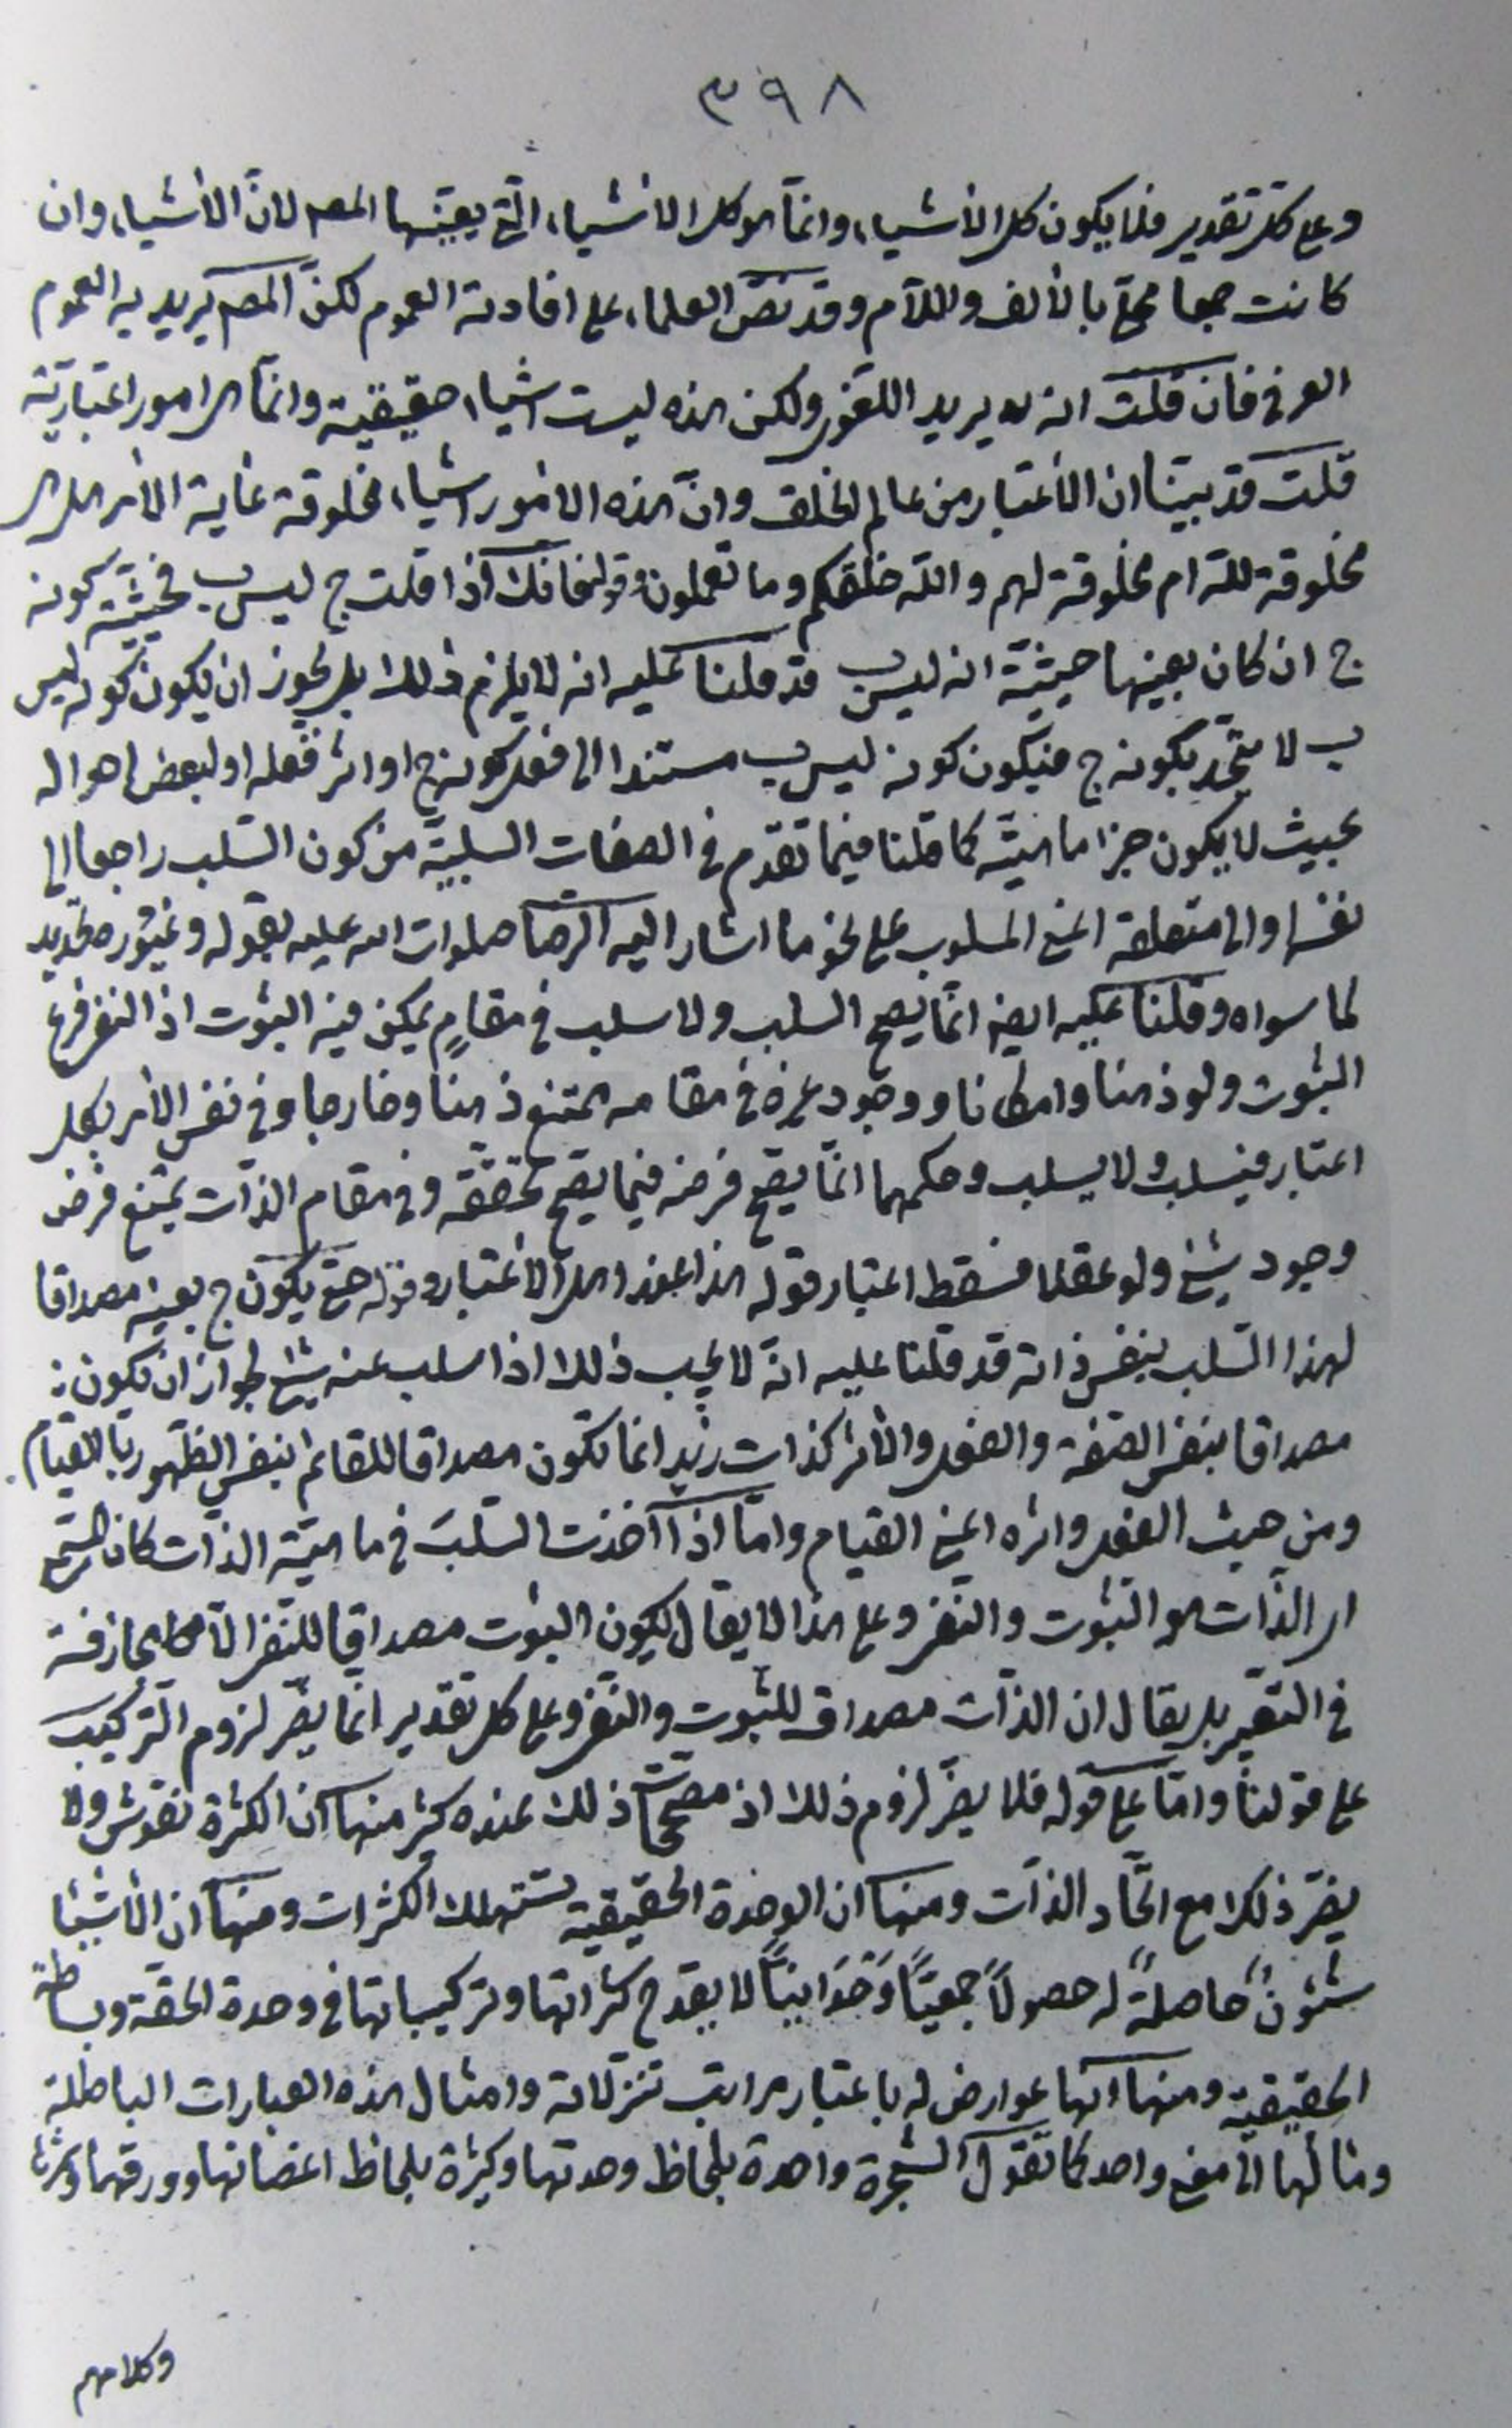 ٣٩٨
وعلى كل تقدير فلا يكون كل الأشياء وانّما هو كل الأشياء الّتي يعيّنها المصـ لانّ الأشياء وان
كانت جمعا محلّى بالألف واللّام وقد نصّ العلماء على افادته العموم لكنّ المصـ يريد به العموم
العرفي فان قلت انه يريد اللغوي ولكن هذه ليست اشياء حقيقية وانّما هي امور اعتباريّة
قلت قد بيّنا ان الأعتبار من عالم الخلق وانّ هذه الامور اشياء مخلوقة غاية الأمر هل هي
مخلوقة للّه ام مخلوقة لهم واللّه خلقكم وما تعملون وقوله فانك اذا قلت ج ليس ب فحيثيّة كونه
ج ان كان بعينها حيثيّة انه ليس ب قد قلنا عليه انه لا يلزم ذلك بل يجوز ان يكون كونه ليس
ب لا يتّحد بكونه ج فيكون كونه ليس ب مستندا الى فعل كونه ج او اثر فعله او لبعض احواله
بحيث لا يكون جزء ماهيّته كما قلنا فيما تقدّم في الصفات السلبيّة من كون السّلب راجعا الى
نفسها والى متعلقه اعني المسلوب على نحو ما اشار اليه الرضا صلوات اللّه عليه بقوله وغيوره تحديد
لما سواه وقلنا عليه ايضا انّما يصح السلب ولا سلب في مقامٍ يمكن فيه الثبوت اذ النفي فرع
الثبوت ولو ذهنا وامكانا ووجود غيره في مقامه ممتنع ذهنا وخارجا وفي نفس الأمر بكل
اعتبار فيسلب ولا يسلب وحكمهما انّما يصح فرضه فيما يصح تحققه وفي مقام الذّات يمتنع فرض
وجود شيء ولو عقلا فسقط اعتبار قوله هذا بهذا الاعتبار وقوله حتى يكون ج بعينه مصداقا
لهذا السّلب بنفس ذاته قد قلنا عليه انّه لا يجب ذلك اذا سلب عنه شيء لجواز ان يكون :
مصداقا بنفس الصّفة والفعل والأثر كذات زيد انما تكون مصداقا للقائم بنفس الظّهور بالقيام
ومن حيث الفعل واثره اعني القيام وامّا اذا اخذت السّلب في ماهيّة الذّات كان المسمّى
اي الذّات هو الثبوت والنفي وعلى هذا لا يقال يكون الثبوت مصداقا للنفي الّا مجازفة
في التعبير بل يقال ان الذّات مصداق للثبوت والنفي وعلى كل تقدير انما يضرّ لزوم التركيب
على قولنا وامّا على قوله فلا يضرّ لزوم ذلك اذ مصحّحات ذلك عنده كثير منها ان الكثرة نقوش ولا
يضرّ ذلك مع اتّحاد الذّات ومنها ان الوحدة الحقيقيّة تستهلك الكثرات ومنها ان الأشياء
شئونٌ حاصلةٌ له حصولاً جمعيّاً وَحْدَانيّاً لا يقدح كثراتها وتركيباتها في وحدة الحقّة وبساطة
الحقيقيّة ومنها انّها عوارض له باعتبار مراتب تنزّلاته وامثال هذه العبارات الباطلة
ومآلها الى معنى واحد كما تقول الشّجرة واحدة بلحاظ وحدتها وكثيرة بلحاظ اغصانها وورقها وثمرها
وكلامهم